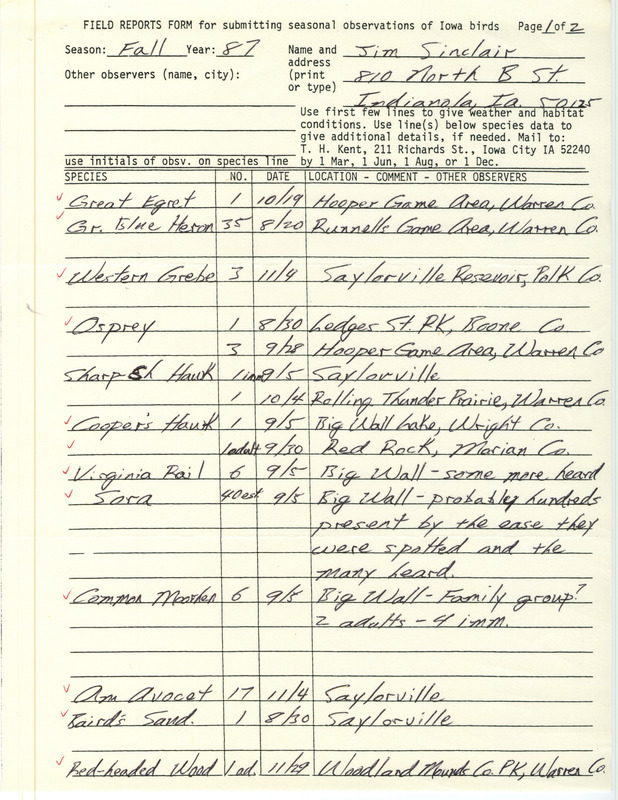 FIELD REPORTS FORM for submitting seasonal observations of Iowa birds Page 1 of 2
Season: Fall Year: 87 Name and address (print or type) Jim Sinclair
Other observers (name, city): 810 North B St.
Indianola, Ia. 50125
Use first few lines to give weather and habitat
conditions. Use line(s) below species data to
give additional details, if needed. Mail to:
T. H. Kent, 211 Richards St., Iowa City IA 52240
use initials of obsv. on species line by 1 Mar, 1 Jun, 1 Aug, or 1 Dec.
SPECIES NO. DATE LOCATION - COMMENT - OTHER OBSERVERS
Great Egret 1 10/19 Hooper Game Area, Warren Co.
Gr. Blue Heron 35 8/20 Runnells Game Area, Warren Co.
Western Grebe 3 11/4 Saylorville Resevoir, Polk Co.
Osprey 1 8/30 Ledges St. PK, Boone Co
3 9/28 Hooper Game Area, Warren Co
Sharp Sh Hawk 1 imm 9/5 Saylorville
1 10/4 Rolling Thunder Prairie, Warren Co.
Cooper's Hawk 1 9/5 Big Wall Lake, Wright Co.
1 adult 9/30 Red Rock, Marian Co.
Virginia Rail 6 9/5 Big Wall - some more heard
Sora 40 est 9/5 Big Wall - probably hundreds
present by the ease they
were spotted and the
many heard.
Common Moorhen 6 9/5 Big Wall - Family group?
2 adults - 4 imm.
Am Avocet 17 11/4 Saylorville
Baird's Sand. 1 8/30 Saylorville
Red-headed Wood 1 ad. 11/29 Woodland Mounds Co. PK, Warren Co.